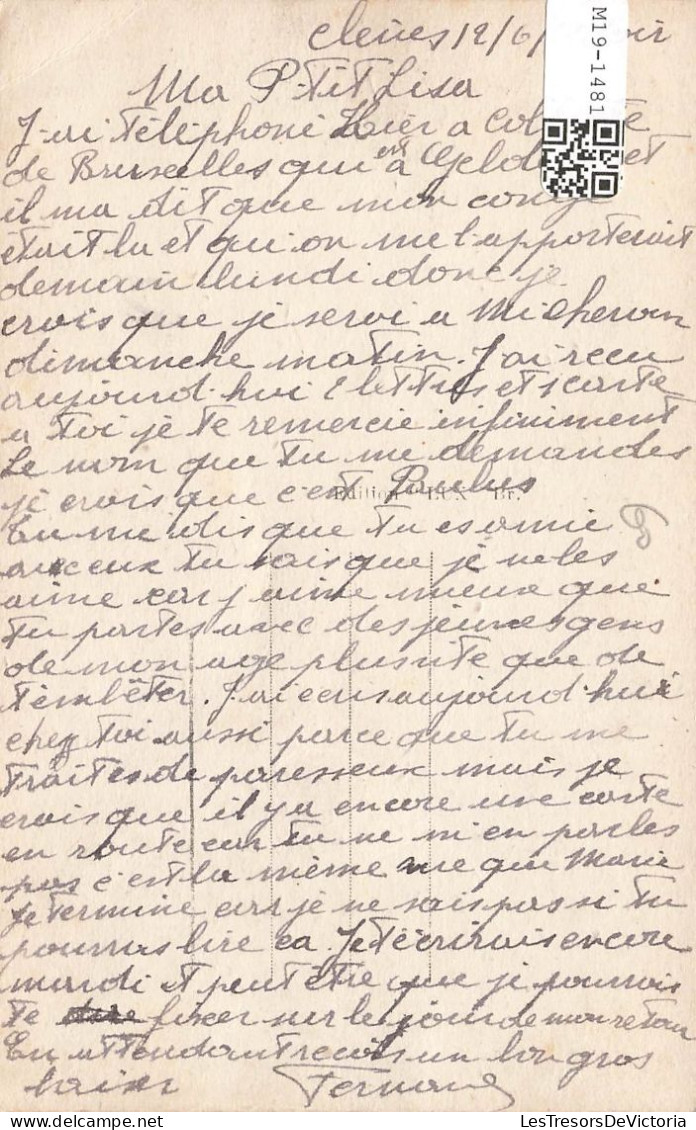 Cleves 12/6/ soir
Ma P-tit Lisa
J-ai téléphoné Hier a
de Bruxelles qui est a et
il ma dit que mon congé
était la et qui on me l-apporterait
demain lundi donc je
crois que je serai a
dimanche matin. J-ai recu
aujourd-hui 2 lettres et 1 carte
a toi je te remercie infiniment
Le nom que tu me demandes
je crois que c'est Paulus
Edition LUX Br.
Tu me dis que tu es amie
avec eux tu sais que je ne les
aime car j aime mieux que
tu partes avec des jeunes gens
de mon age plus vite que de
t'embêter. J-ai ecris aujourd-hui
chez toi aussi parce que tu me
traites de paresseux mais je
crois que il y a encore une carte
en route car tu ne m'en parles
pas c'est la même vue que Marie
Je termine car je ne sais pas si tu
pourras lire ca. Je t'écrirais encore
mardi et peut être que je pourrais
te fixer sur le jour de mon retour
En attendant recois un bon gros
baiser Fernand
M19-1481
LesTresorsDeVictoria.com